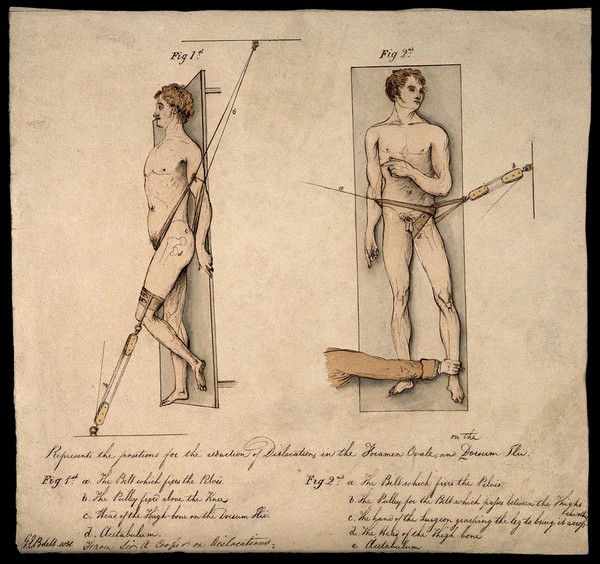 Fig 1st
Fig 2d
a
b
c
a
b
d
on the
Represents the positions for the reduction of Dislocations in the Foramen Ovale, and Dorsum Ilii.
Fig 1st a. The Belt which fixes the Pelvis.
b. The Pulley fixed above the Knee
c. Head of the Thigh bone on the Dorsum Ilii.
d. Acetabulum.
From Sir A Cooper on Dislocations.
Fig 2nd a. The Belt which fixes the Pelvis
b. The Pulley for the Belt which passes between the Thighs
c. The hand of the Surgeon grasping the leg to bring it across
d. The Head of the Thigh-bone
e. Acetabulum